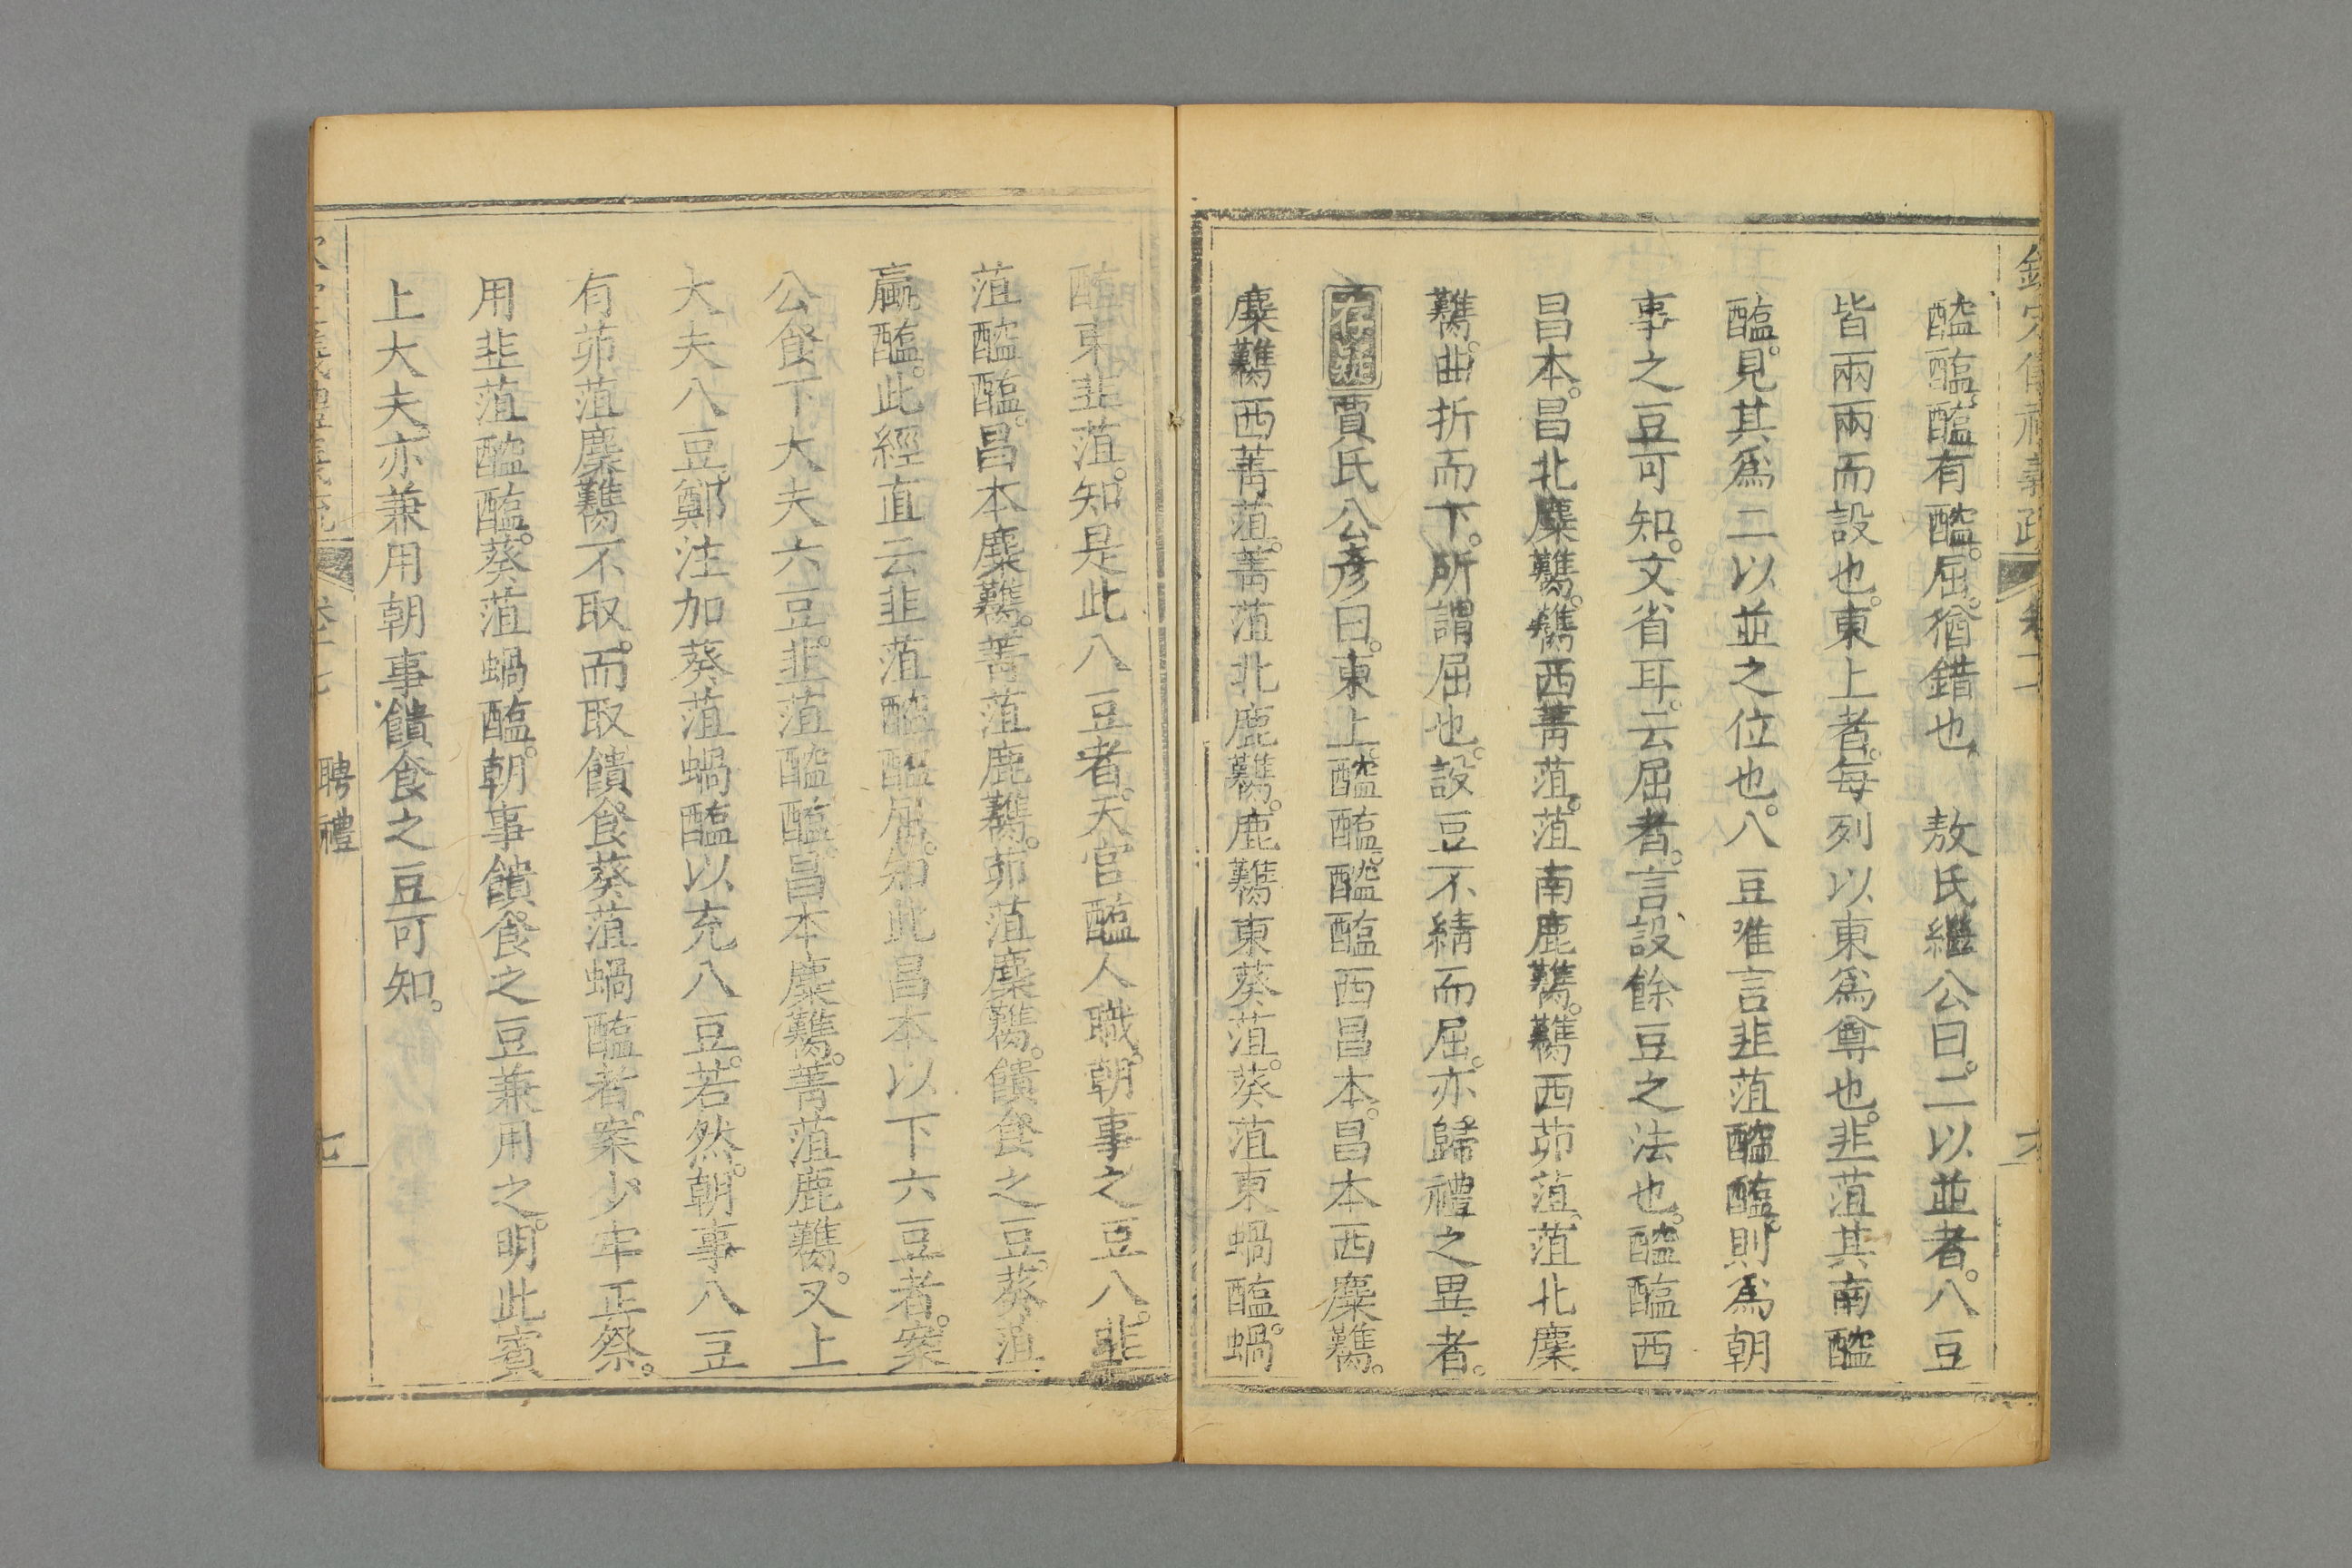 醓醢醢有醓屈猶錯也　敖氏繼公曰二以並者八豆
皆兩兩而設也東上者每列以東爲尊也韭菹其南醓
醢見其爲二以並之位也八豆唯言韭菹醓醢則爲朝
事之豆可知文省耳云屈者言設餘豆之法也醓醢西
昌本昌北麋臡臡西菁菹菹南鹿臡臡西茆菹菹北麋
臡曲折而下所謂屈也設豆不綪而屈亦歸禮之異者
存疑賈氏公彥曰東上醓醢醓醢西昌本昌本西麋臡
麋臡西菁菹菁菹北鹿臡鹿臡東葵菹葵菹東蝸醢蝸
醢東韭菹知是此八豆者天官醢人職朝事之豆八韭
菹醓醢昌本麋臡菁菹鹿臡茆菹麋臡饋食之豆葵菹
蠃醢此經直云韭菹醓醢屈知此昌本以下六豆者案
公食下大夫六豆韭菹醓醢昌本麋臡菁菹鹿臡又上
大夫八豆鄭注加葵菹蝸醢以充八豆若然朝事八豆
有茆菹麋臡不取而取饋食葵菹蝸醢者案少牢正祭
用韭菹醓醢葵菹蝸醢朝事饋食之豆兼用之明此賓
上大夫亦兼用朝事饋食之豆可知
聘禮